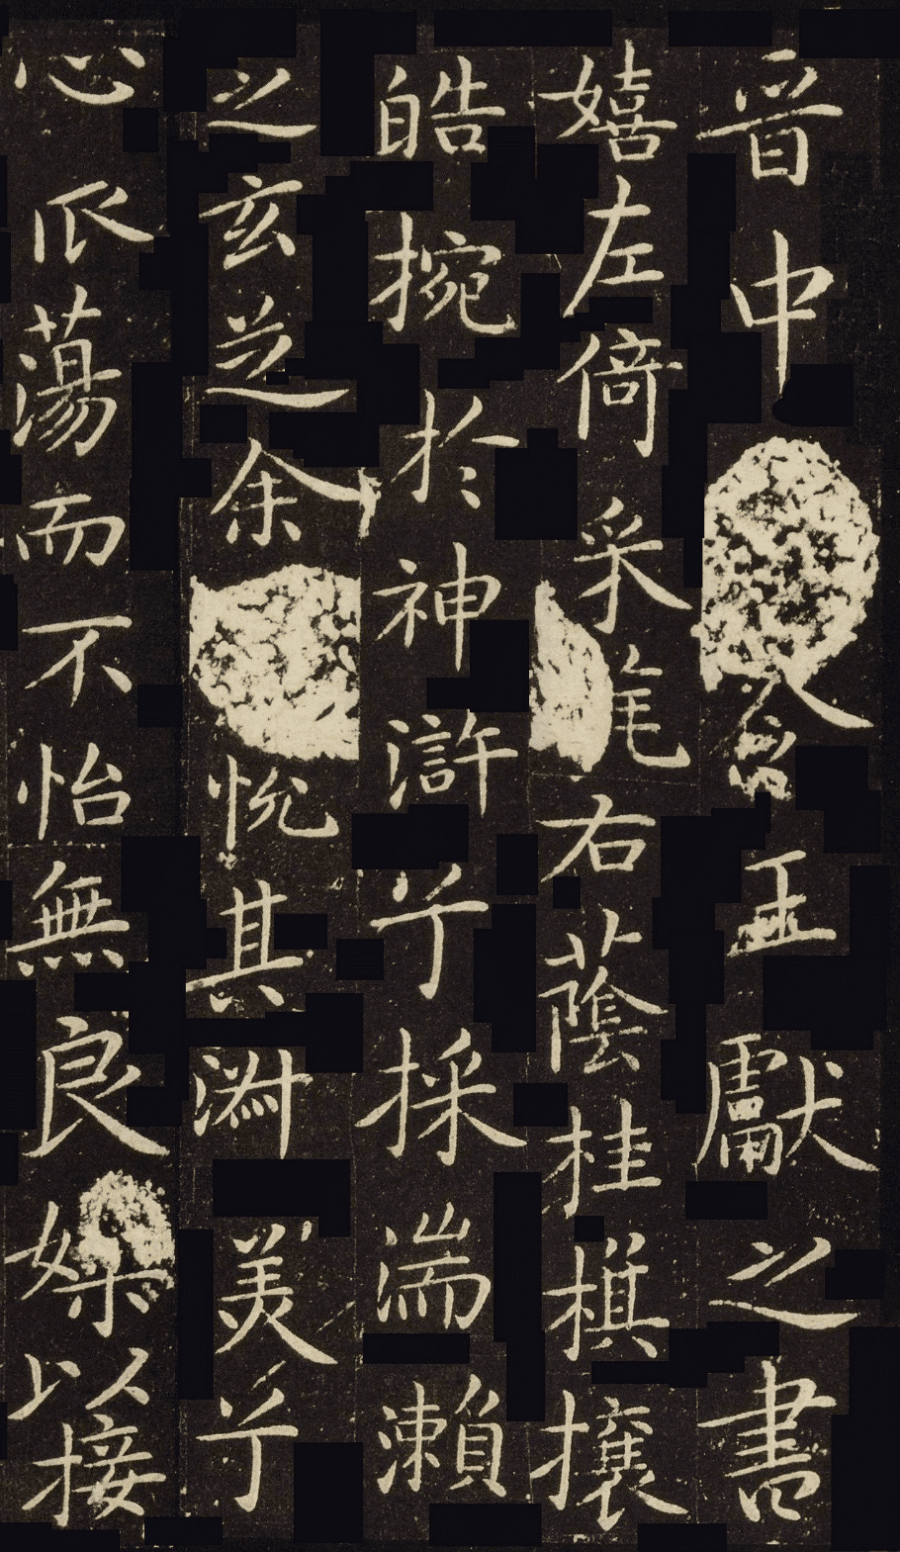 晉中令王獻之書
嬉左倚采旄右蔭桂旗攘
皓捥於神滸兮採湍瀨
之玄芝余悅其淑美兮
心振蕩而不怡無良媒以接